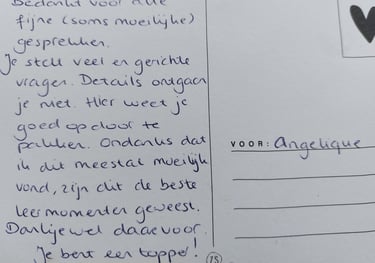 Bedankt voor alle
fijne (soms moeilijke)
gesprekken.
Je stelt veel en gerichte
vragen. Details ontgaan
je niet. Hier weet je
goed op door te
pakken. Ondanks dat
ik dit meestal moeilijk
vond, zijn dit de beste
leermomenten geweest.
Dankjewel daarvoor.
Je bent een topper!
VOOR: Angelique
15